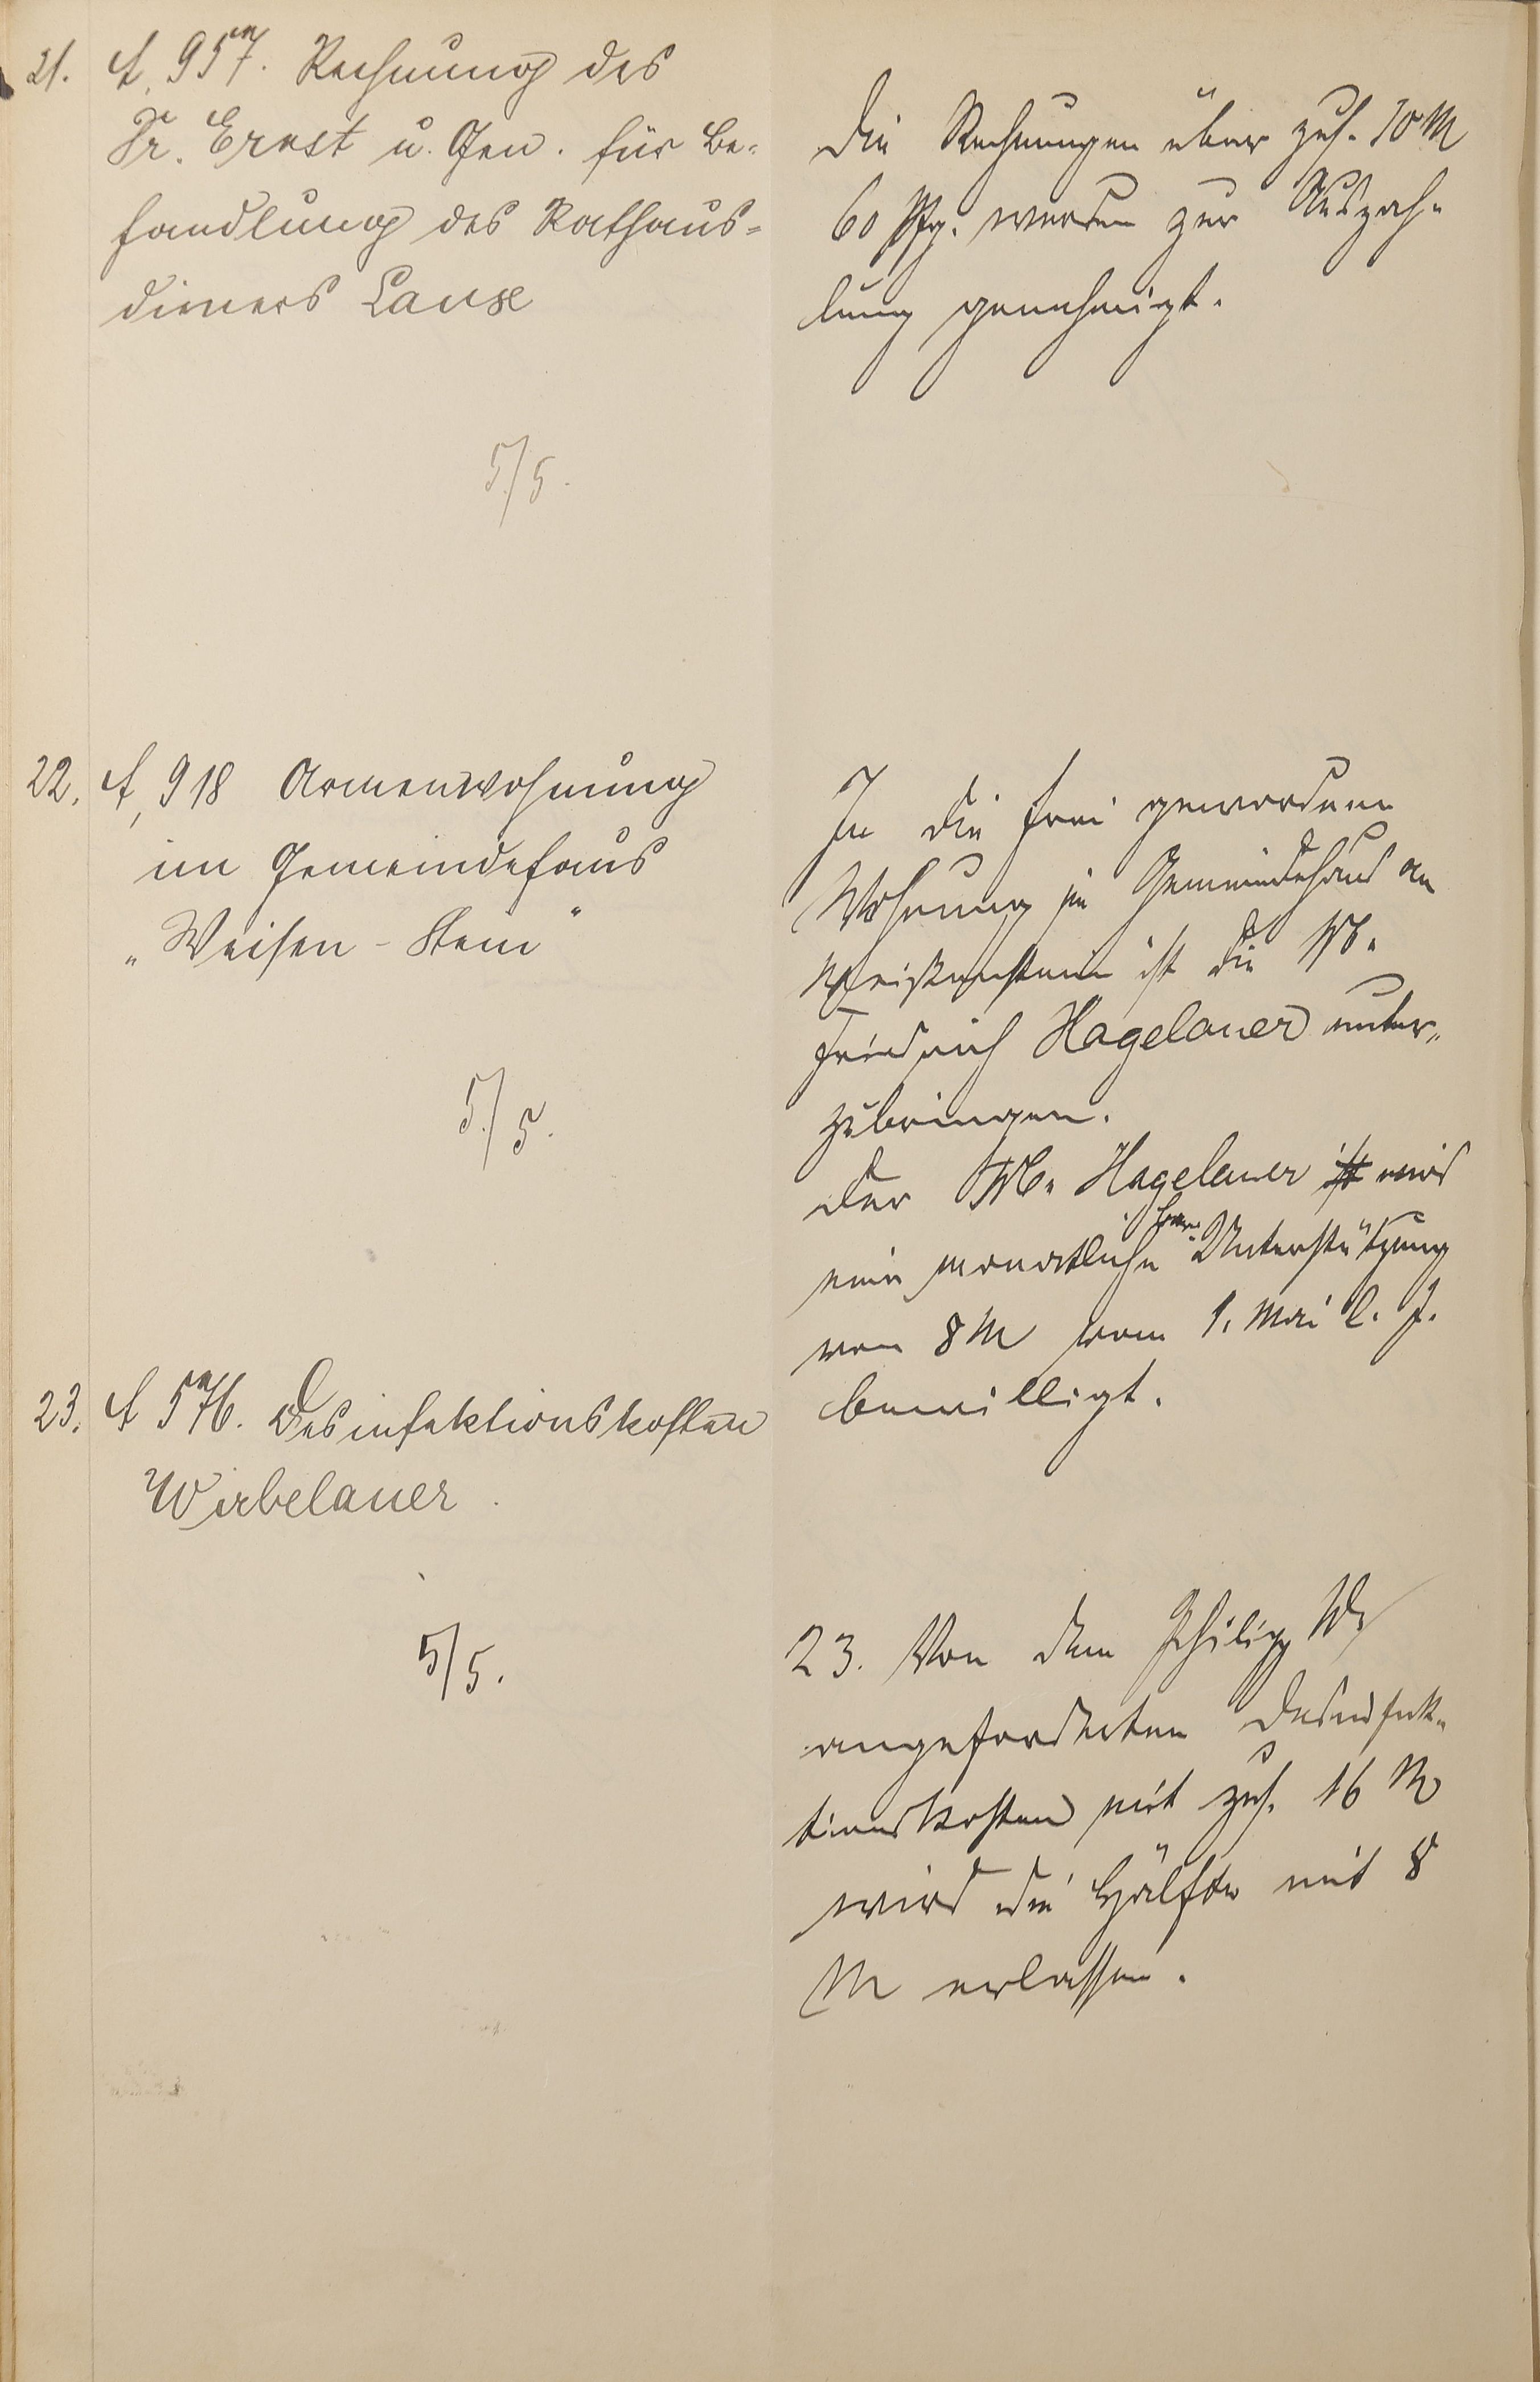 21. A, 957. Rechnung des
Dr. Ernst u. Gen. für Be-
handlung des Rathaus-
dieners Lanx
5/5.
Die Rechnungen über zus. 10 M
60 Pfg. werden zur Auszah-
lung genehmigt.
22. A, 918 Armenwohnung
im Gemeindehaus
„Weisen-Stein"
5/5.
In die frei gewordene
Wohnung im Gemeindehaus am
Weißenstein ist die Ww.
Friedrich Hagelauer unter-
zubringen.
Der Ww. Hagelauer ist wird
eine monatliche Unterstützung
von 8 M vom 1. Mai l. J.
bewilligt.
23. A 576. Desinfektionskosten
Wirbelauer.
5/5.
23. Von dem Philipp W.
angeforderten Desinfek-
tionskosten mit zus. 16 M
wird die Hälfte mit 8
M erlassen.